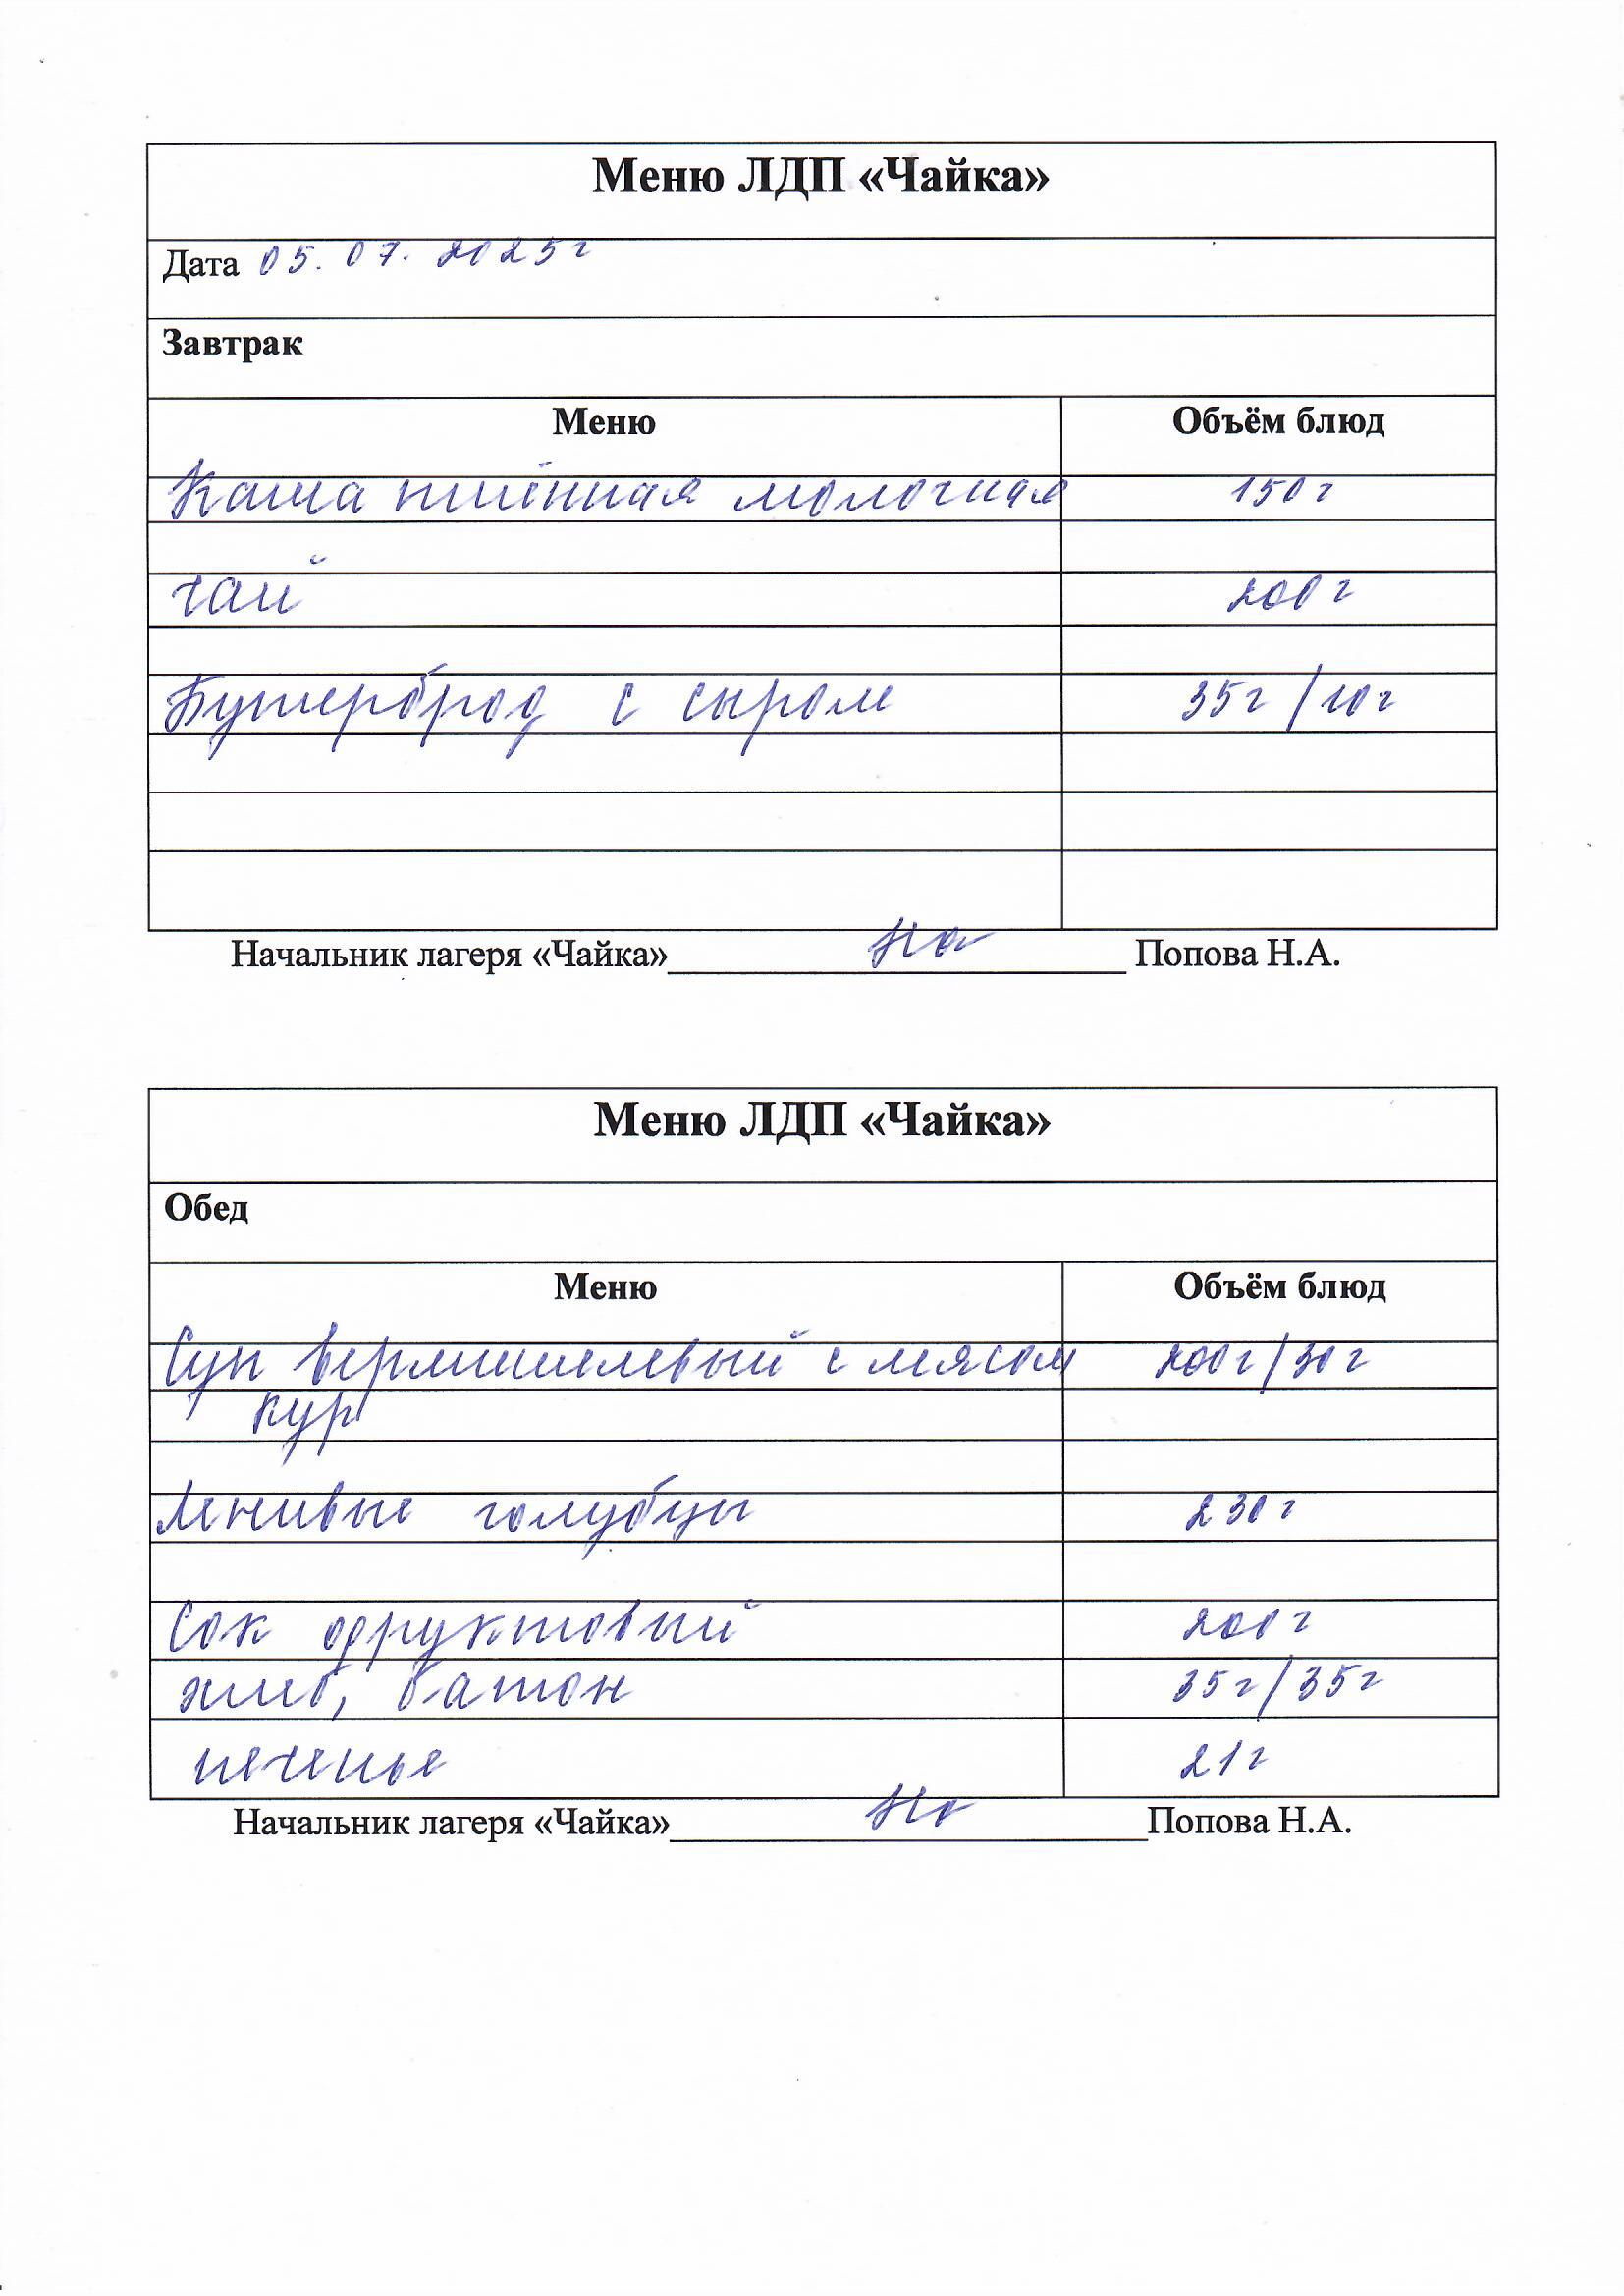 Меню ЛДП «Чайка»
Дата 05.07.2025г
Завтрак
Меню Объём блюд
Каша пшённая молочная 150г
чай 200г
Бутерброд с сыром 35г/10г
Начальник лагеря «Чайка» Попова Н.А.
Меню ЛДП «Чайка»
Обед
Меню Объём блюд
Суп вермишелевый с мясом 200г/30г
кур
Ленивые голубцы 230г
Сок фруктовый 200г
хлеб, батон 35г/35г
печенье 21г
Начальник лагеря «Чайка» Попова Н.А.